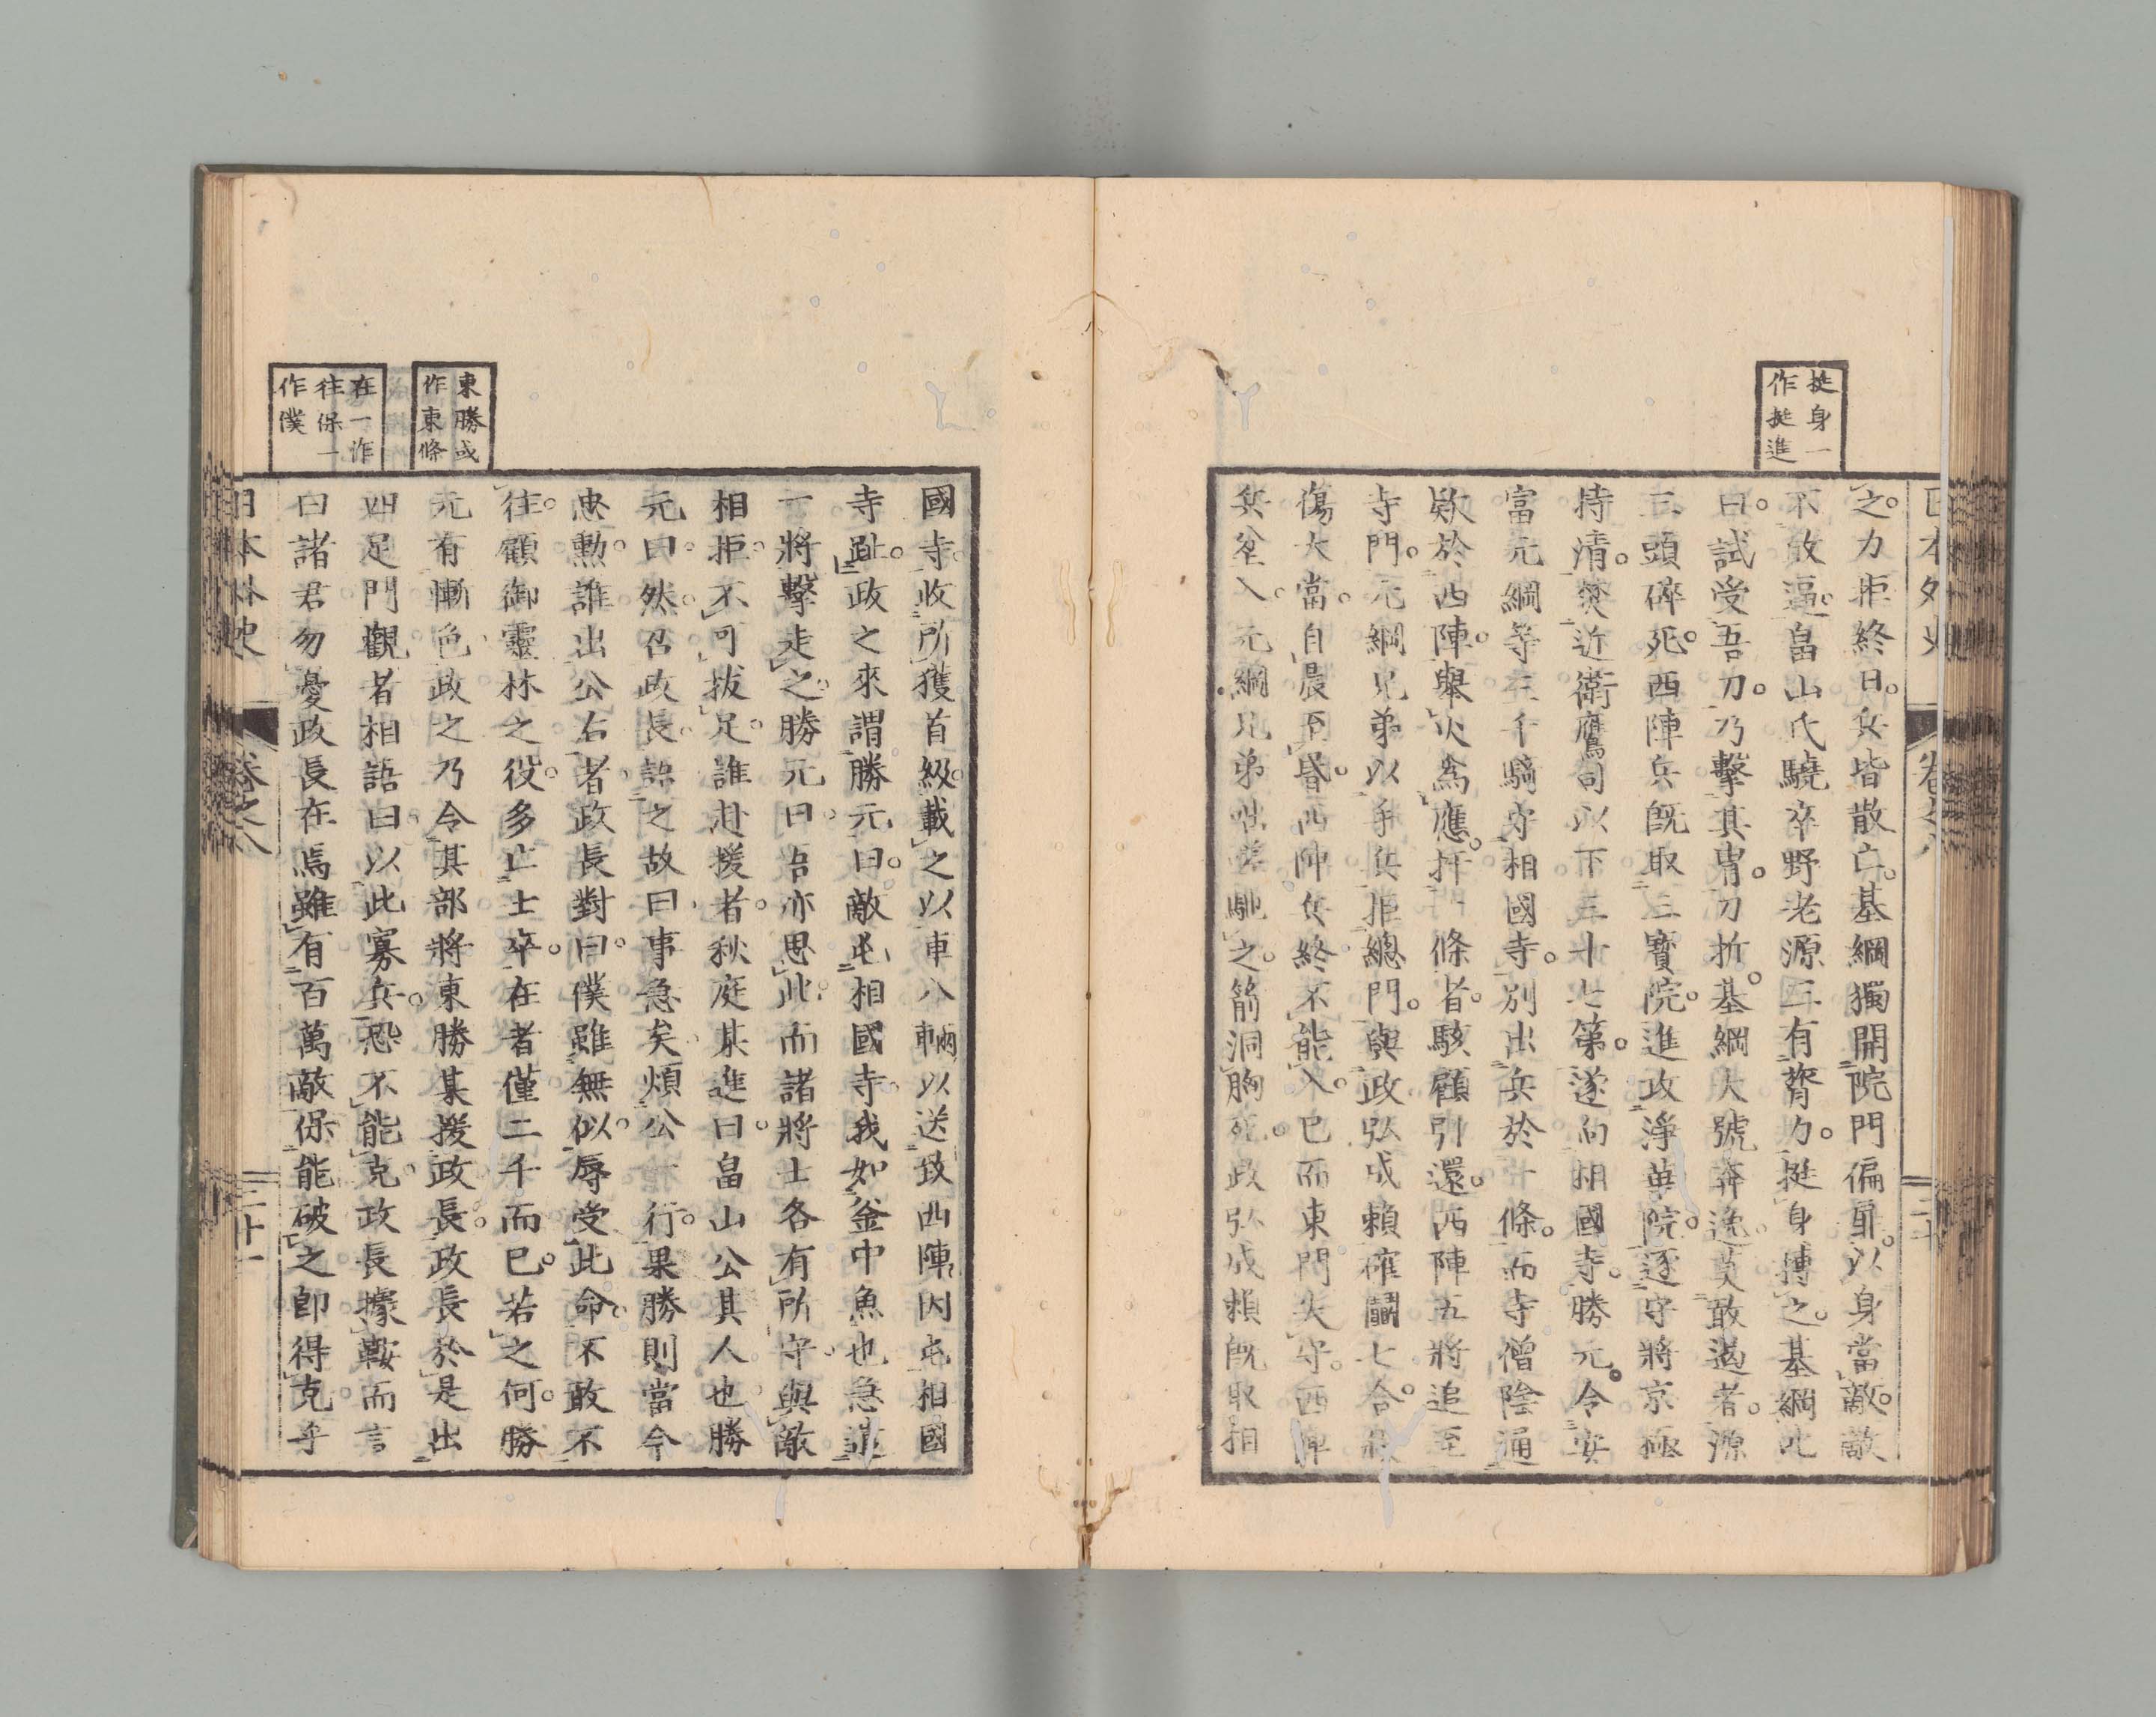 挺身一
作挺進
日本外史
卷之八
二十
之力拒終日兵皆散亡基綱獨開院門偏扉以身當敵敵
不敢逼畠山氏驍卒野老源三有膂力挺身搏之基綱叱
曰試受吾刀乃擊其冑刀折基綱大號奔逸莫敢遏者源
三頭碎死西陣兵既取三寶院進攻淨華院逐守將京極
持清焚近衛鷹司以下三十七第遂向相國寺勝元令安
富元綱等三千騎守相國寺別出兵於一條而寺僧陰通
欵於西陣舉火為應扞一條者駭顧引還西陣五將追至
寺門元綱兄弟以手兵拒總門與政弘成賴確鬭七合殺
傷大當自晨至昏西陣兵終不能入已而東門失守西陣
兵坌入元綱兄弟馳之箭洞胸死政弘成賴既取相
國寺收所獲首級載之以車八輛以送致西陣因屯相國
寺趾政之來謂勝元曰敵屯相國寺我如釜中魚也急遣
一將擊走之勝元曰吾亦思此而諸將士各有所守與敵
相拒不可拔足誰赴援者秋庭某進曰畠山公其人也勝
元曰然召政長語之故曰事急矣煩公一行果勝則當今
忠勳誰出公右者政長對曰僕雖無似辱受此命不敢不
往顧御靈林之役多亡士卒在者僅二千而已若之何勝
元有慚色政之乃令其部將東勝某援政長政長於是出
四足門觀者相語曰以此寡兵恐不能克政長據鞍而言
曰諸君勿憂政長在焉雖有百萬敵保能破之即得克乎
東勝或
作東條
在一作
往保一
作僕
日本外史
卷之八
二十一